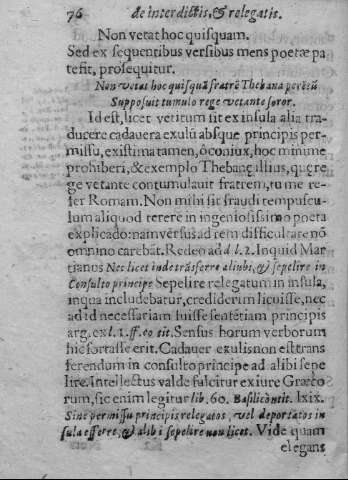 76 de interdictis, & relegatis.
Non vetat hoc quisquam.
Sed ex sequentibus versibus mens poetæ pa
tefit, prosequitur.
Non vetat hoc quisquā fratrē Thebana perētū
Supposuit tumulo rege vetante soror.
Id est, licet vetitum sit ex insula alia tra-
ducere cadauera exulū absque principis per-
missu, existima tamen, ô coniux, hoc minime
prohiberi, & exemplo Thebanę illius, quę re
ge vetante contumulauit fratrem, tu me re-
fer Romam. Non mihi sit fraudi tempuscu-
lum aliquod terere in ingeniosissimo poeta
explicādo: nā in versus ad rem difficultare nō
omnino carebāt. Redeo ad d. l. 2. Inquid Mar
tianus Nec licet inde trāsferre alinbi, & sepelire in
Consulto principe Sepelire relegatum in insula,
in qua includebatur, crediderim licuisse, nec
ad id necessariam fuisse sententiam principis
arg. ex l. 1. ff. eo tit. Sensus horum verborum
hic fortasse erit. Cadauer exulis non est trans
ferendum in consulto principe ad alibi sepe
lire. Intellectus valde fulcitur ex iure Græco
rum, sic enim legitur lib. 60. Basilicōn tit. lxix.
Sine permissu principis relegatos, vel deportatos in
sula efferre, & alibi sepelire non licet. Vide quam
elegans